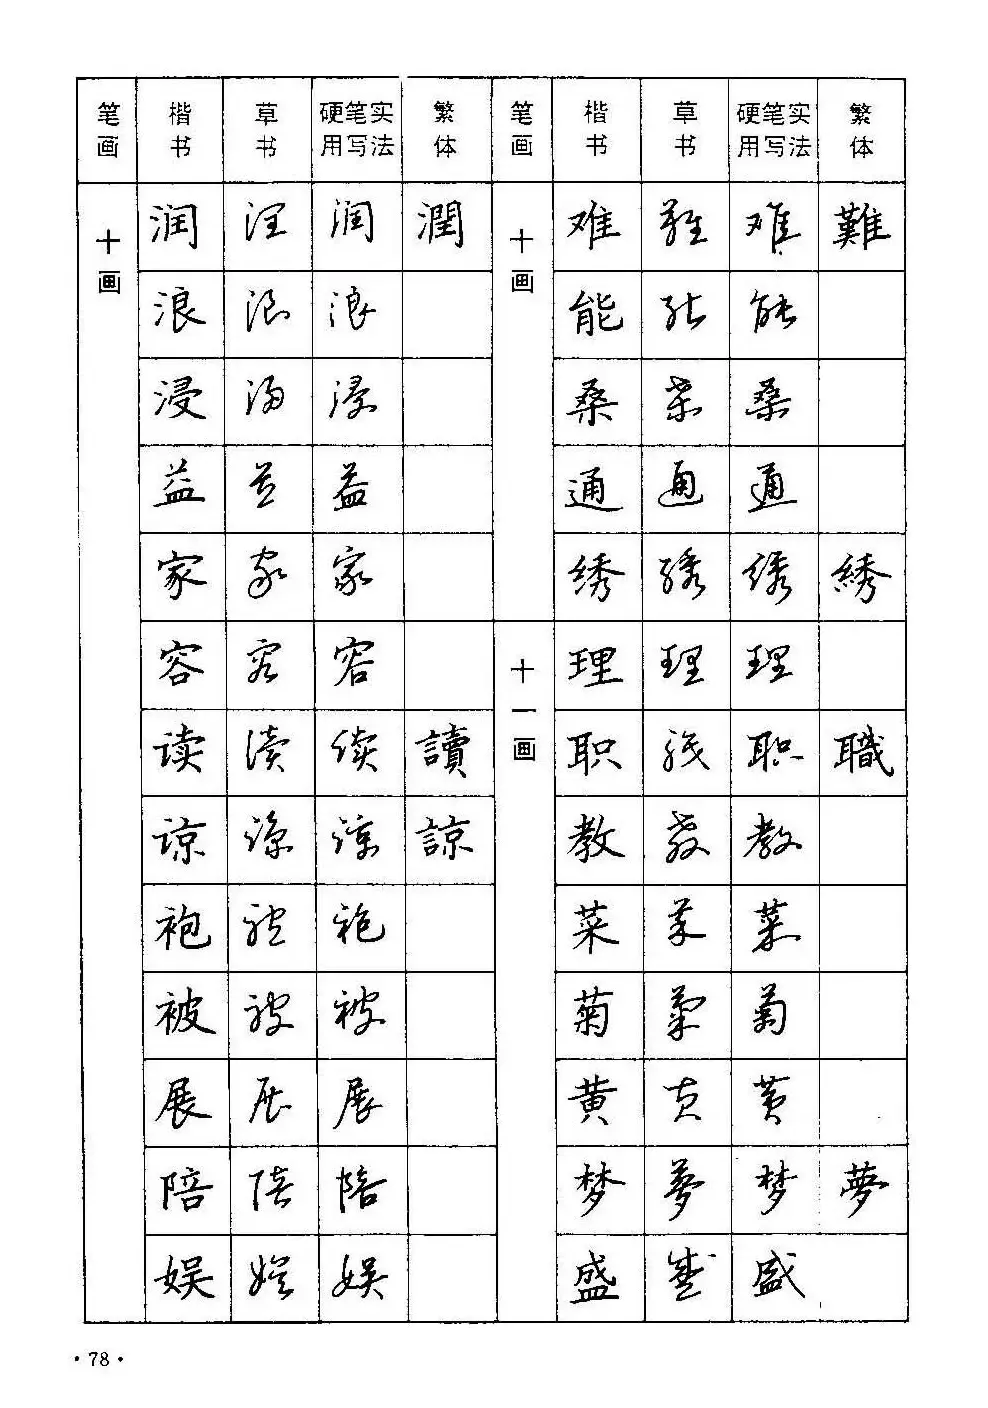 笔画 楷书 草书 硬笔实用写法 繁体 笔画 楷书 草书 硬笔实用写法 繁体
十画 润 润 润 潤 十画 难 难 难 難
浪 浪 浪 能 能 能
浸 浸 浸 桑 桑 桑
益 益 益 通 通 通
家 家 家 绣 绣 绣 綉
容 容 容 十一画 理 理 理
读 读 续 讀 职 职 职 職
谅 谅 谅 諒 教 教 教
袍 袍 袍 菜 菜 菜
被 被 被 菊 菊 菊
展 展 展 黄 黄 黄
陪 陪 陪 梦 梦 梦 夢
娱 娱 娱 盛 盛 盛
·78·